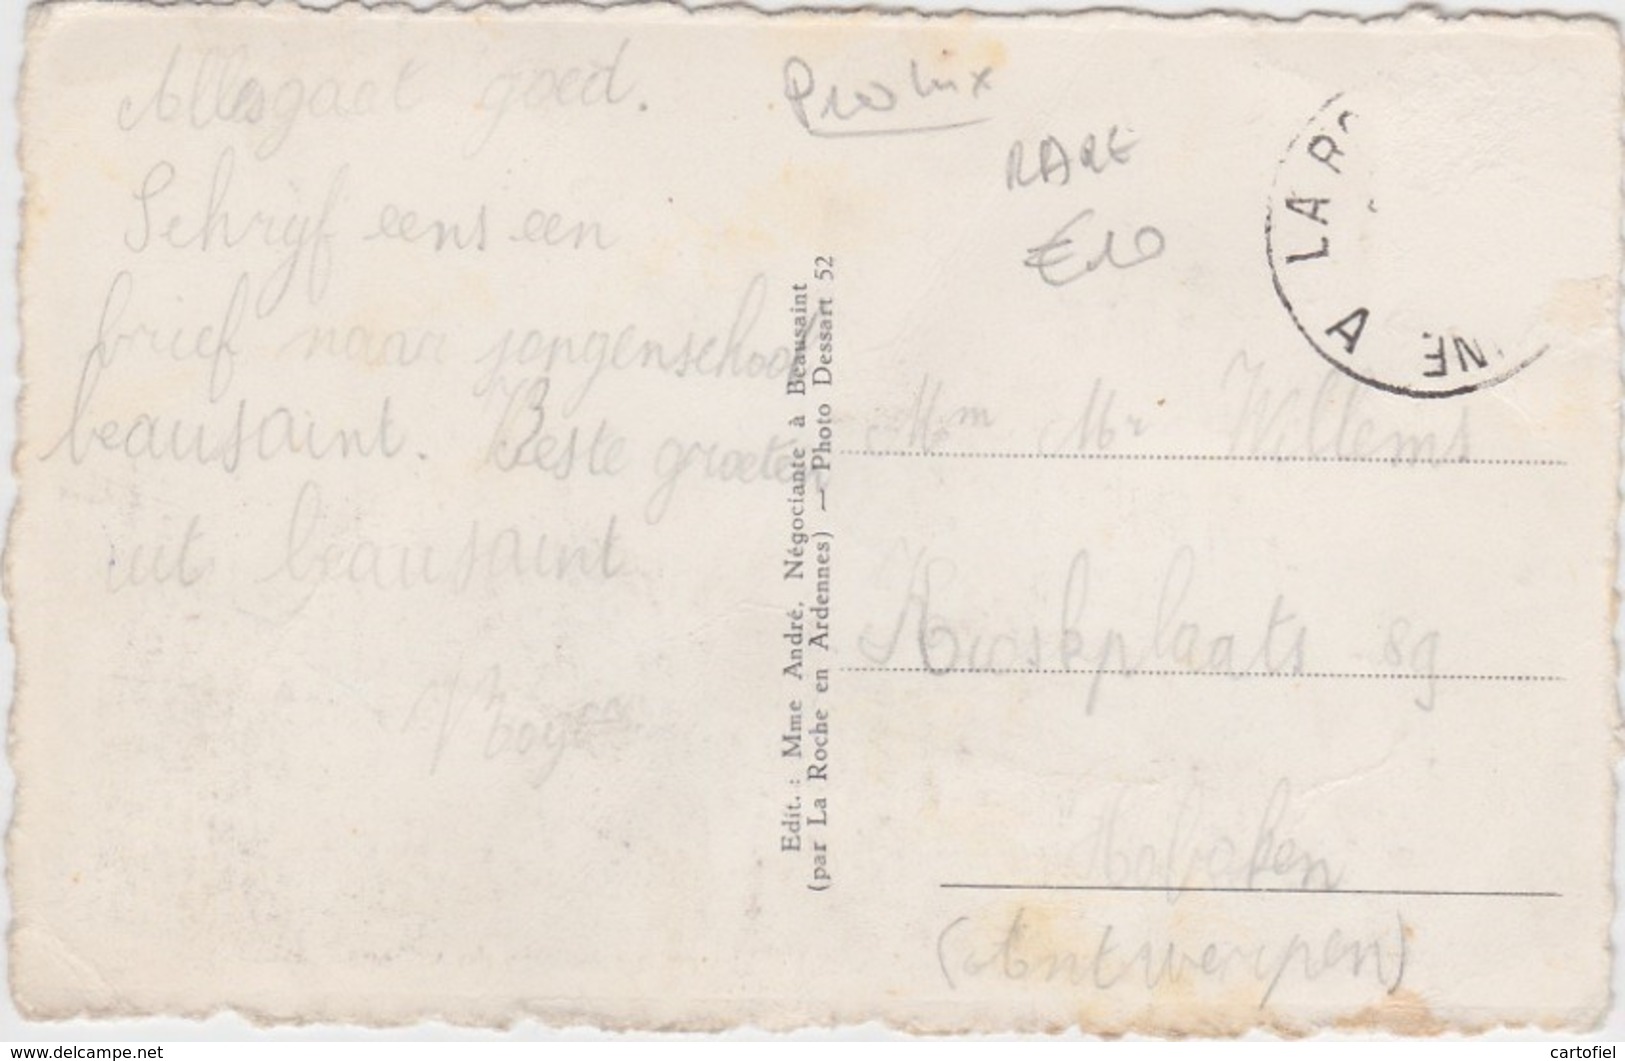 Alles gaat goed.
Schryf eens een
brief naar jongenschool
beausaint. Beste groeten
uit beausaint
Pro lux
RARE
€10
LA RO
A
NE
Edit. : Mme André, Négociante à Beausaint
(par La Roche en Ardennes) — Photo Dessart 52
Mm Mr Willems
Kioskplaats 89
Hoboken
(Antwerpen)
www.delcampe.net
cartofiel